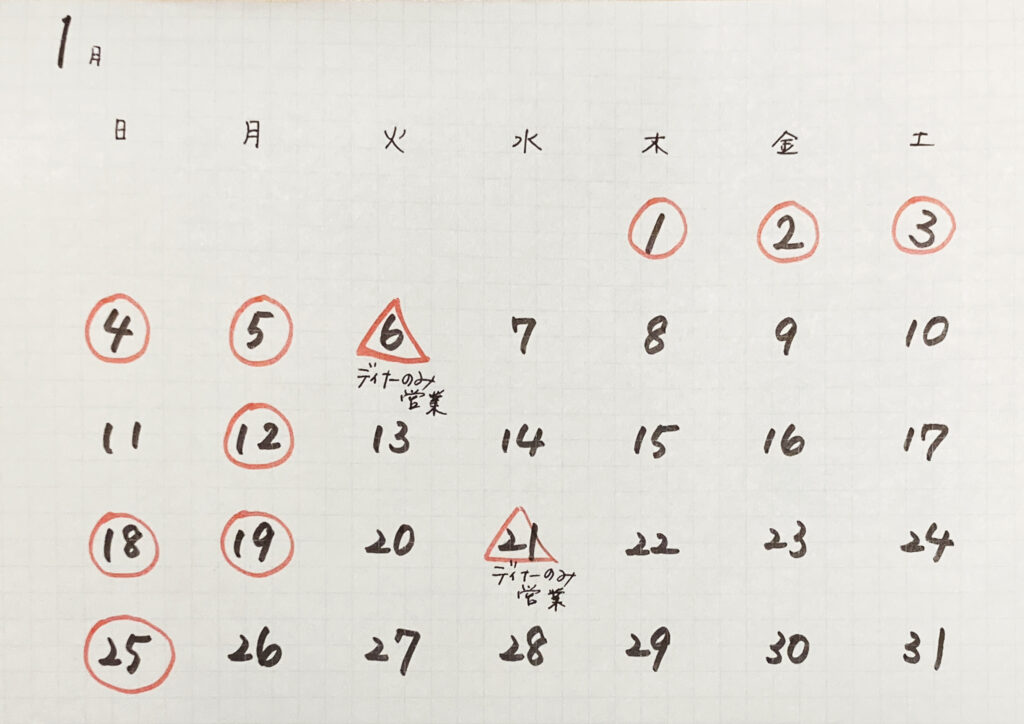 1月
日 月 火 水 木 金 土
1 2 3
4 5 6 7 8 9 10
ディナーのみ
営業
11 12 13 14 15 16 17
18 19 20 21 22 23 24
ディナーのみ
営業
25 26 27 28 29 30 31